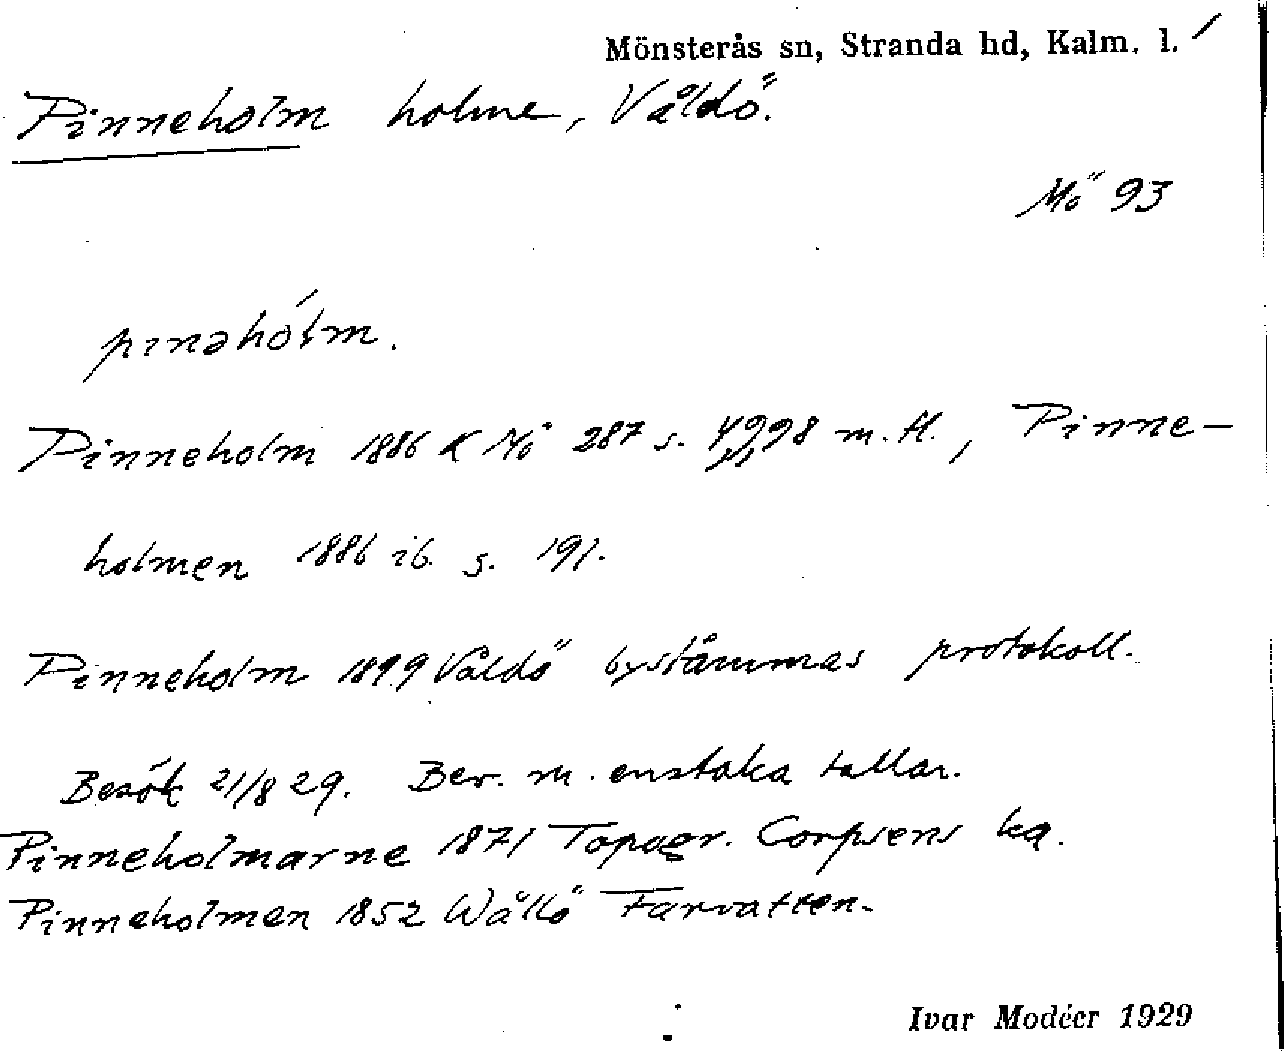 Mönsterås sn, Stranda hd, Kalm. l.
Pinneholm holme, Våldö.
Mö 93
pınəhólm.
Pinneholm 1886 K Mö 287 s. 98 m. fl., Pinne-
holmen 1886 ib. s. 191.
Pinneholm 1899 Våldö bystämmas protokoll.
Besök 21/8 29. Bev. m. enstaka tallar.
Pinneholmarne 1871 Topogr. Corpsens ka.
Pinneholmen 1852 Wållö Farvatten.
Ivar Modéer 1929